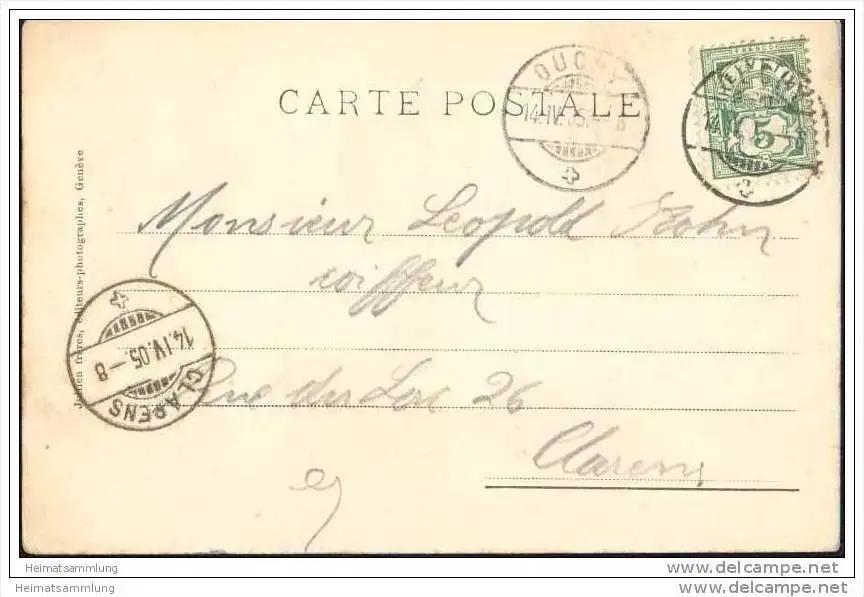 CARTE POSTALE
OUCHY
14.IV.05.
HELVETIA
5
Monsieur Leopold Kohn
coiffeur
Rue du Lac 26
Clarens
Jullien frères, éditeurs-photographes, Genève
14.IV.05.-8
CLARENS
Heimatsammlung
Heimatsammlung
www.delcampe.net
www.delcampe.net